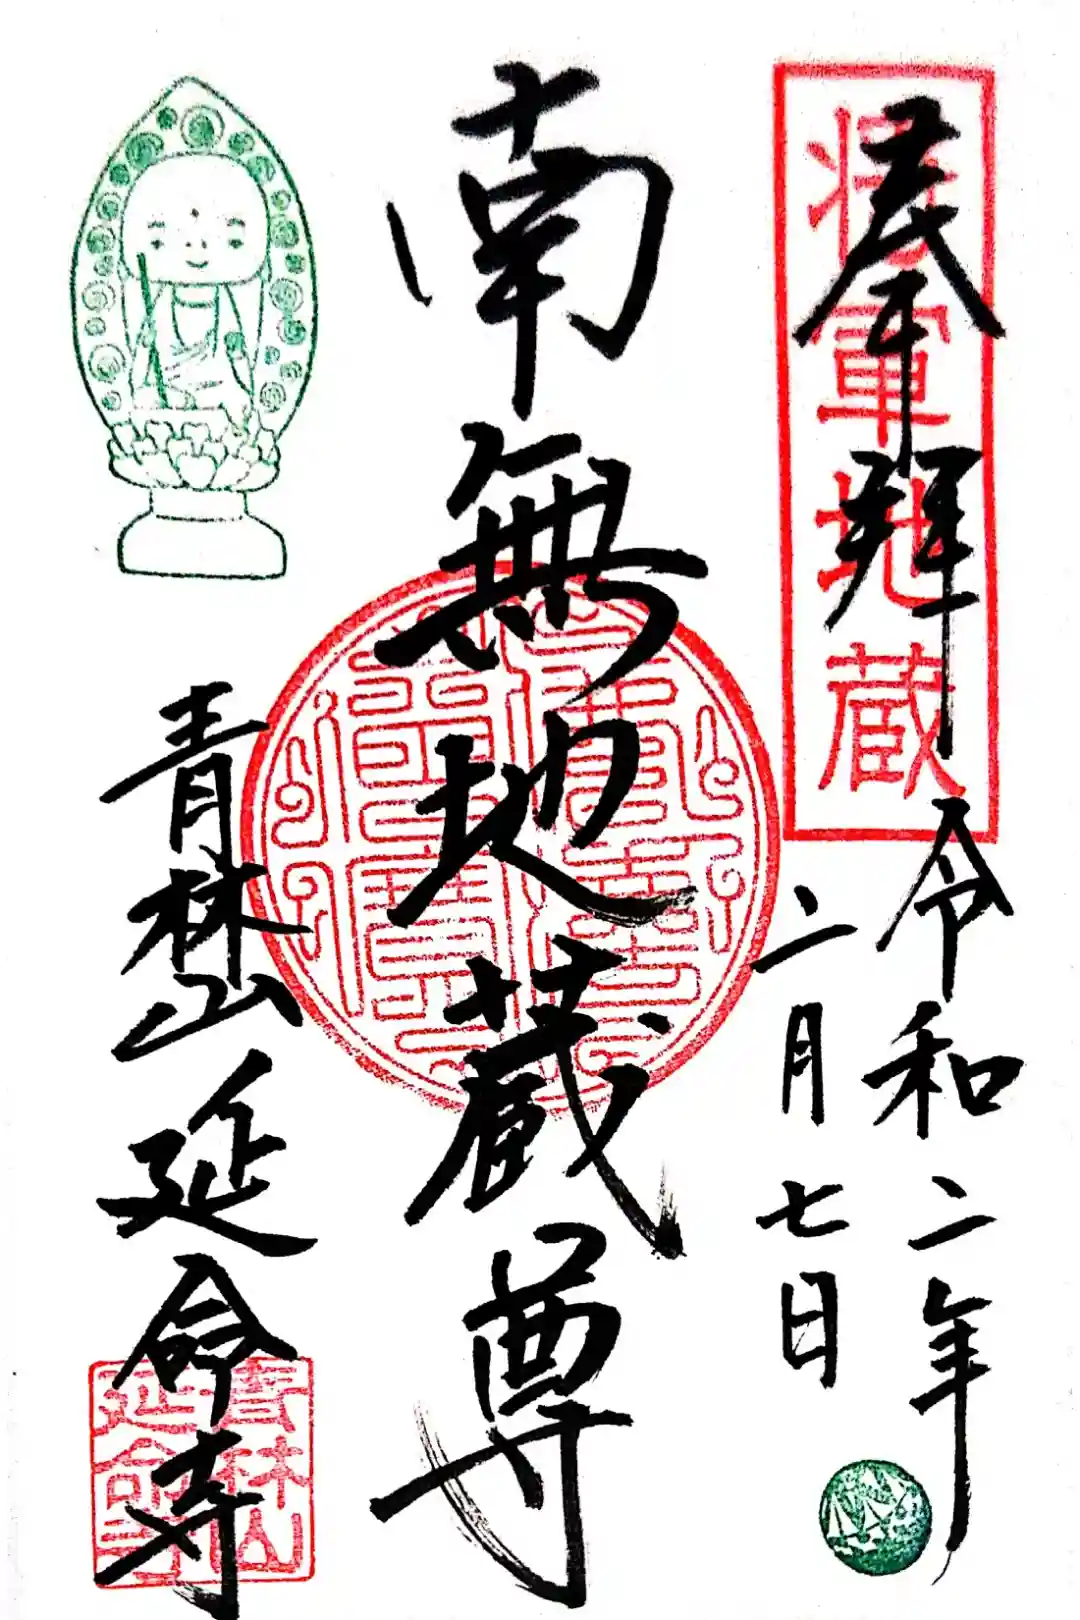 奉拝
将軍地蔵
令和二年
二月七日
南無地蔵尊
青林山延命寺
青林山
延命寺